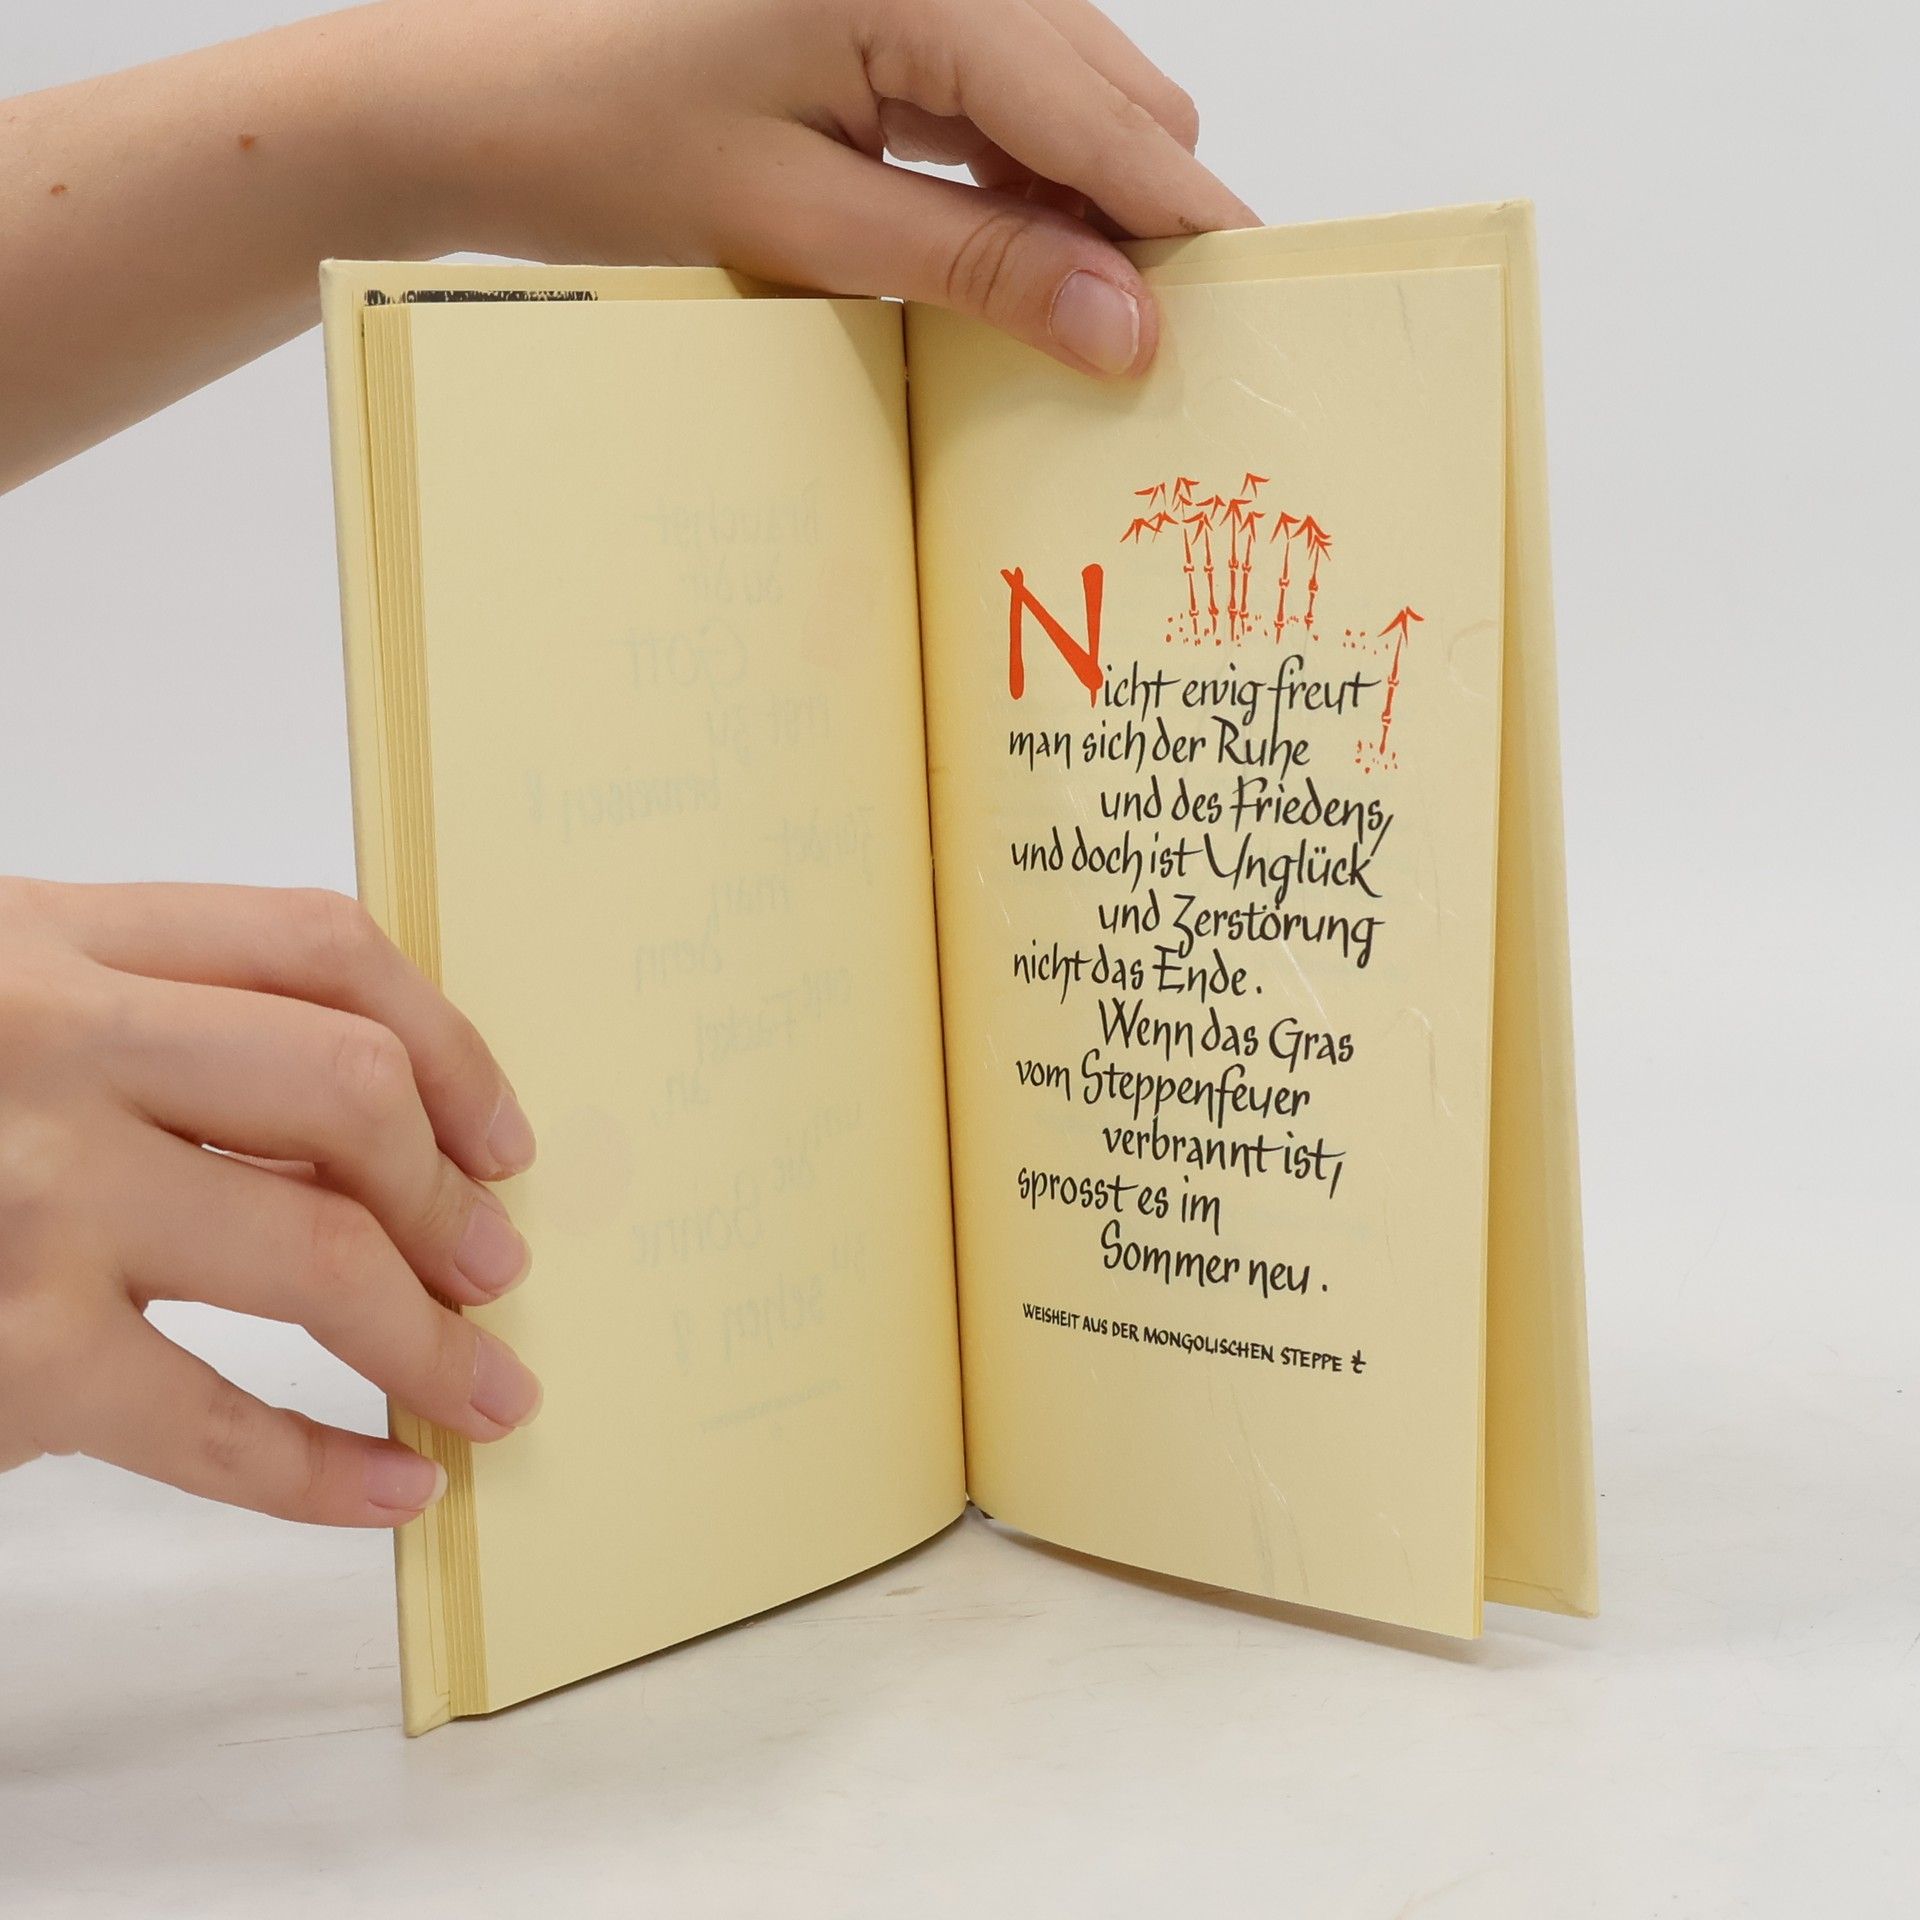 Nicht ewig freut
man sich der Ruhe
und des Friedens,
und doch ist Unglück
und Zerstörung
nicht das Ende.
Wenn das Gras
vom Steppenfeuer
verbrannt ist,
sprosst es im
Sommer neu.
WEISHEIT AUS DER MONGOLISCHEN STEPPE